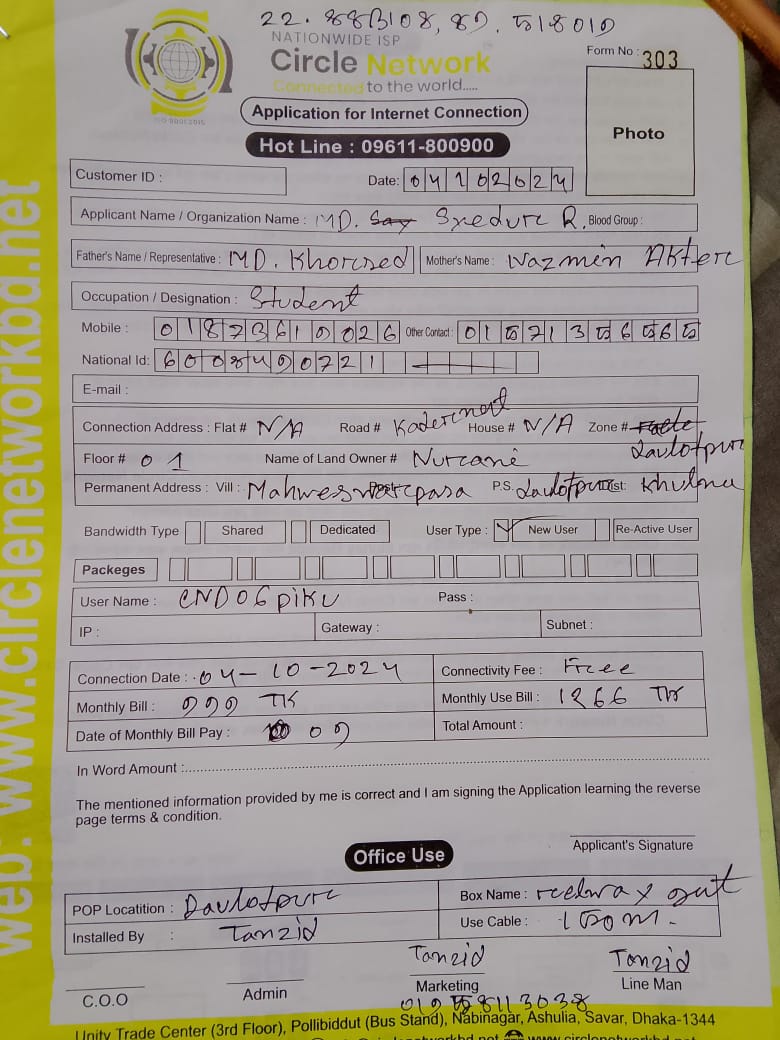 NATIONWIDE ISP
Circle Network
Connected to the world.....
ISO 9001:2015
Form No : 303
Application for Internet Connection
Photo
Hot Line : 09611-800900
Customer ID :
Date: 04102024
Applicant Name / Organization Name : MD. Blood Group :
Father's Name / Representative : MD. Khorcsed Mother's Name : Nazmin Akterc
Occupation / Designation : Student
Mobile : 01873610026 Other Contact :
National Id:
E-mail :
Connection Address : Flat # N/A Road # House # N/A Zone #
Floor # 01 Name of Land Owner # Nurcani
Permanent Address : Vill : Post: P.S. Dist: Khulna
Bandwidth Type Shared Dedicated User Type : New User Re-Active User
Packeges
User Name : CND06piku Pass :
IP : Gateway : Subnet :
Connection Date : 04-10-2024 Connectivity Fee : Free
Monthly Bill : 999 TK Monthly Use Bill : 1266 TK
Date of Monthly Bill Pay : 09 Total Amount :
In Word Amount :
The mentioned information provided by me is correct and I am signing the Application learning the reverse
page terms & condition.
Applicant's Signature
Office Use
POP Locatition : Daulotpurc Box Name :
Installed By : Tanzid Use Cable :
Tanzid Tanzid
C.O.O Admin Marketing Line Man
Unity Trade Center (3rd Floor), Pollibiddut (Bus Stand), Nabinagar, Ashulia, Savar, Dhaka-1344
web: www.circlenetworkbd.net